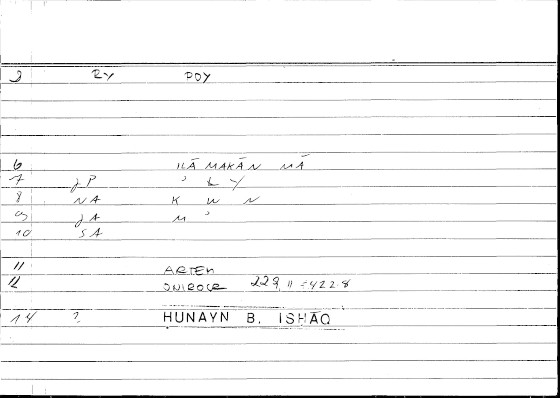 3 RY ΠΟΥ
6 ILĀ MAKĀN MĀ
7 JP ʾ L Y
8 NA K W N
9 JA M ʾ
10 SA
11 ARTEM
12 ONIROCR 229,11 = 422.8
14 ? HUNAYN B. ISHĀQ